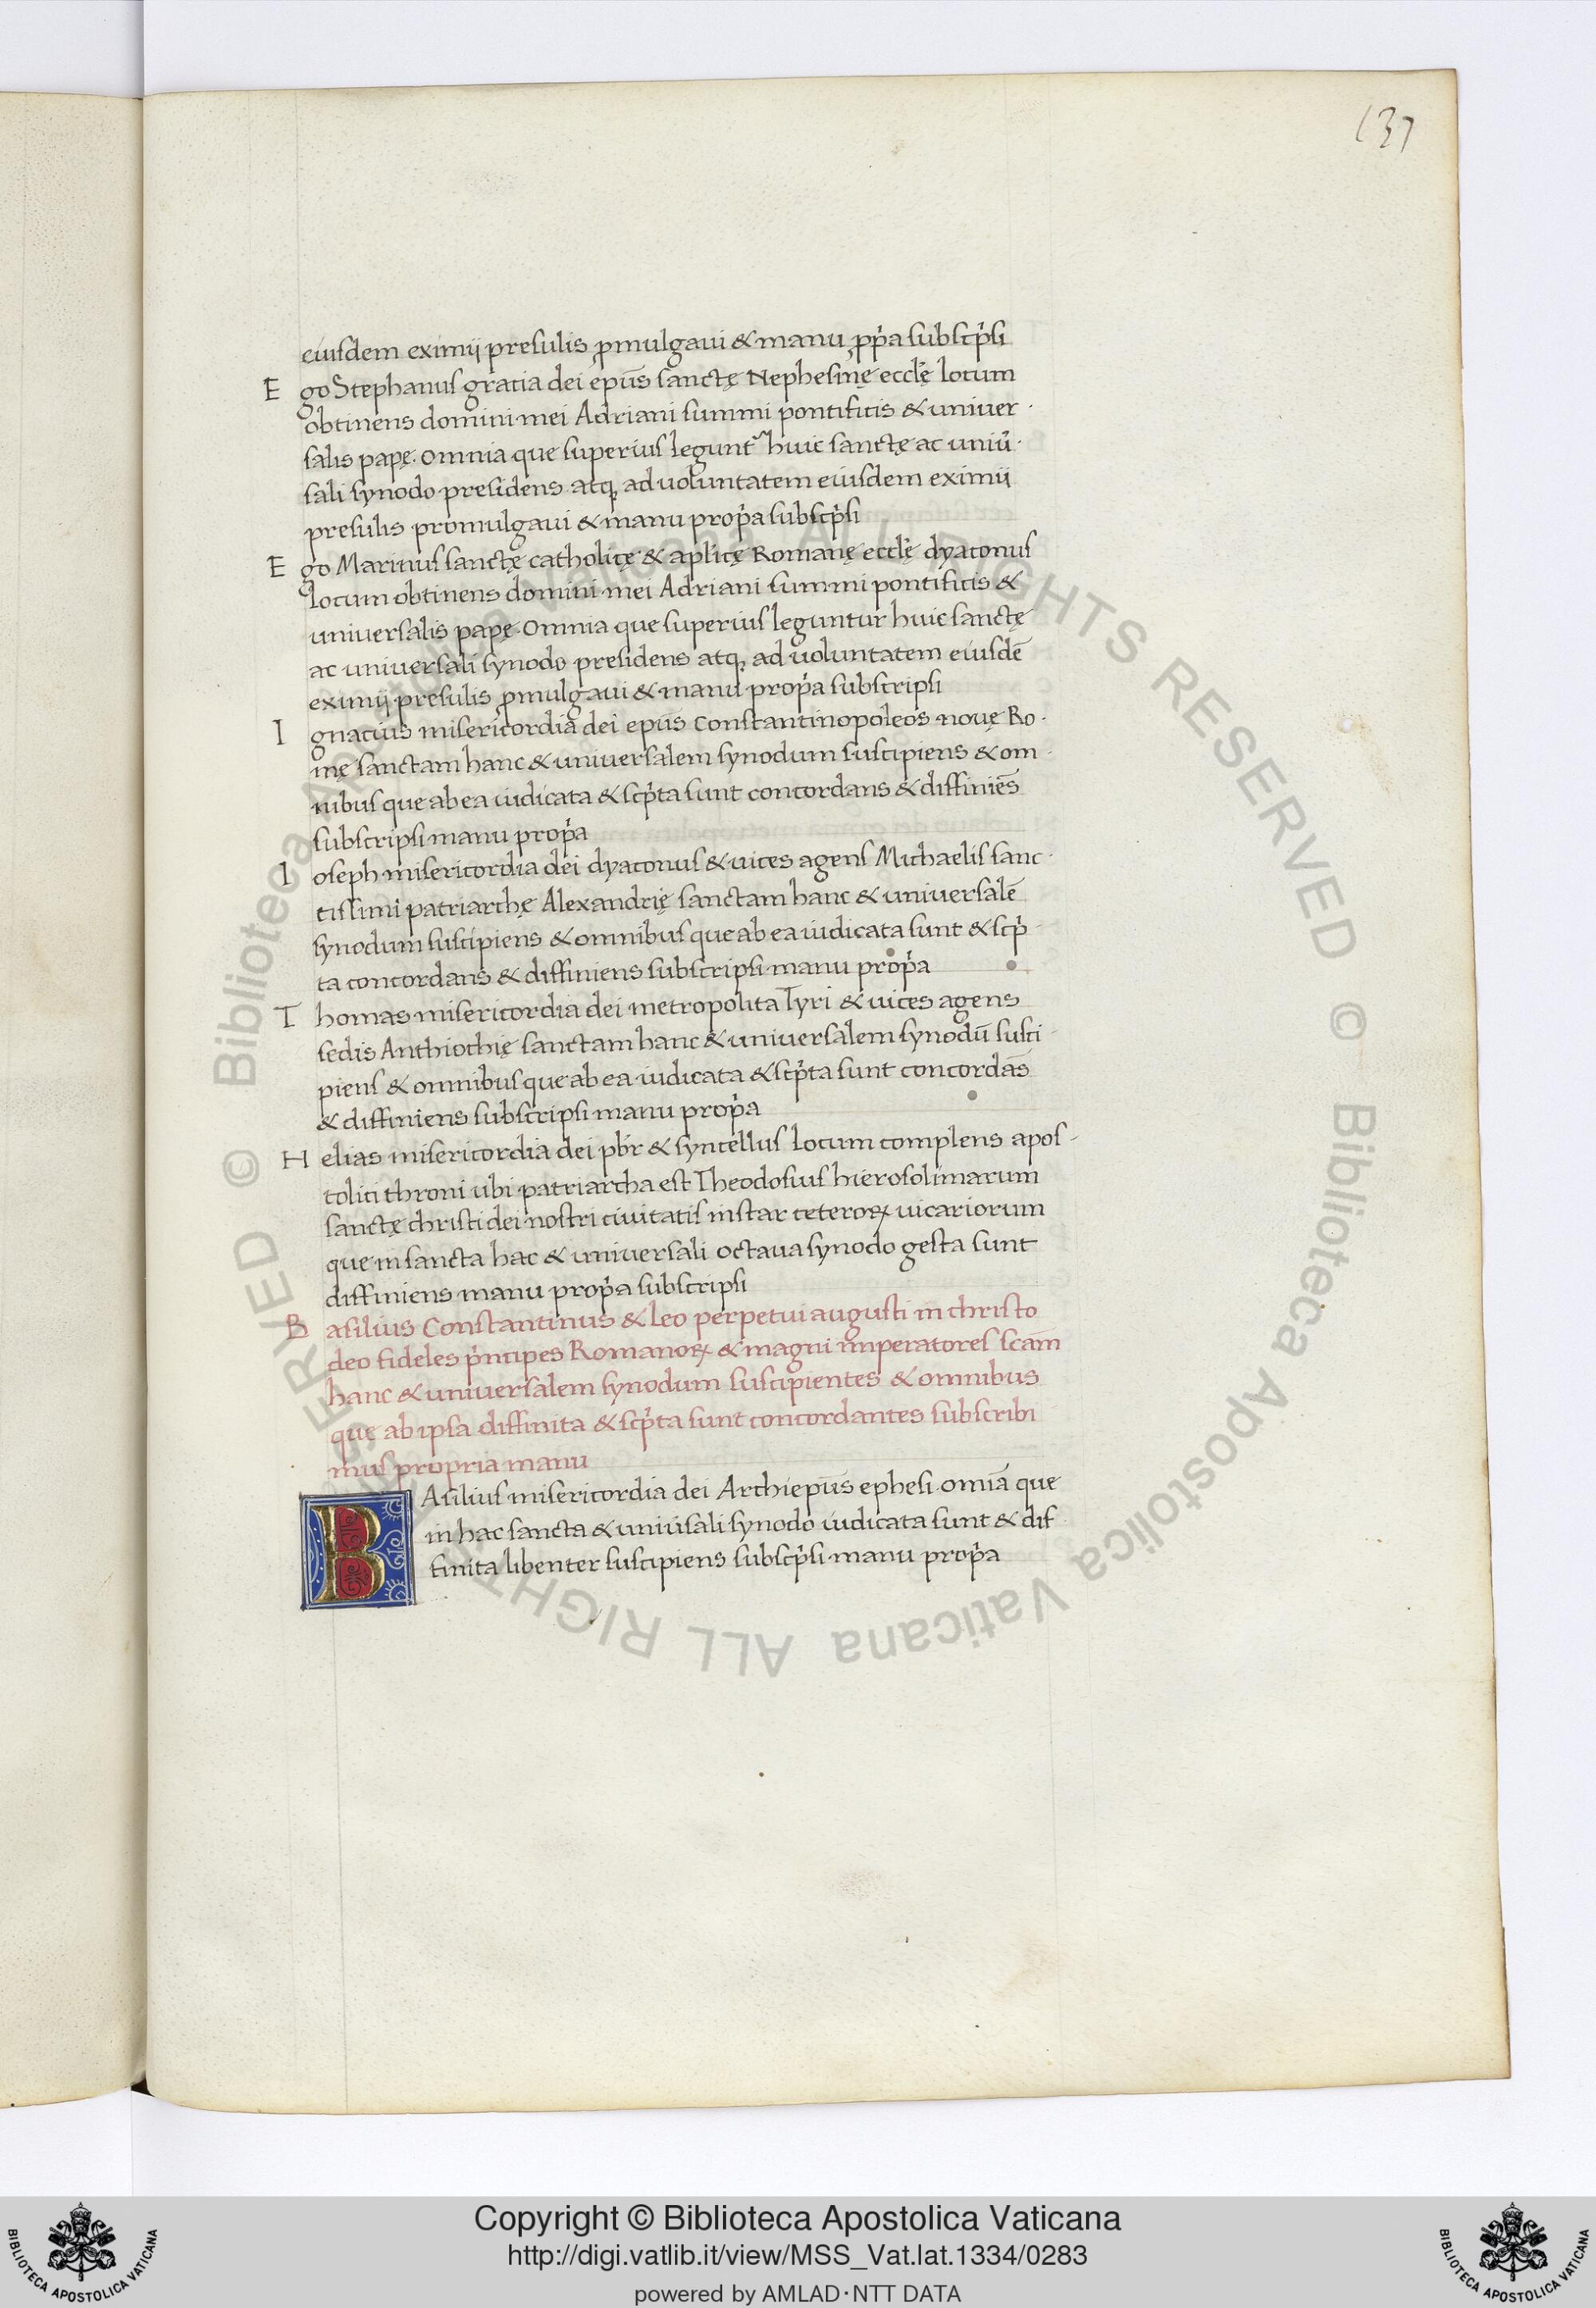 137
eiusdem eximij presulis ꝓmulgaui & manu ꝓp̉a subscp̉si
Ego Stephanus gratia dei ep̄us sanctę Nephesinę eccl̄ę locum
obtinens domini mei Adriani summi pontificis & univer
salis papę. Omnia que superius legunt᷑ huic sanctę ac uniu̓
sali synodo presidens atqꝫ ad uoluntatem eiusdem eximii
presulis promulgaui & manu prop̉a subscp̉si
Ego Marinus sanctę catholicę & ap̄licę Romanę eccl̄ę dyaconus
locum obtinens domini mei Adriani summi pontificis &
universalis papę. Omnia que superius leguntur huic sanctę
ac universali synodo presidens atqꝫ ad uoluntatem eiusdē
eximij presulis ꝓmulgaui & manu prop̉a subscripsi
Ignatius misericordia dei ep̄us Constantinopoleos nouę Ro
mę sanctam hanc & universalem synodum suscipiens & om
nibus que ab ea iudicata & scp̉ta sunt concordans & diffiniēs
subscripsi manu prop̉a
Ioseph misericordia dei dyaconus & uices agens Michaelis sanc
tissimi patriarchę Alexandrię sanctam hanc & universalē
synodum suscipiens & omnibus que ab ea iudicata sunt & scp̉
ta concordans & diffiniens subscripsi manu prop̉a
Thomas misericordia dei metropolita Tyri & uices agens
sedis Anthiochię sanctam hanc & universalem synodū susci
piens & omnibus que ab ea iudicata & scp̉ta sunt concordās
& diffiniens subscripsi manu prop̉a
Helias misericordia dei pb̄r & syncellus locum complens apos
tolici throni ubi patriarcha est Theodosius hierosolimarum
sanctę christi dei nostri ciuitatis instar ceteroꝝ uicariorum
que in sancta hac & universali octaua synodo gesta sunt
diffiniens manu prop̉a subscripsi
Basilius Constantinus & leo perpetui augusti in christo
deo fideles p̉ncipes Romanoꝝ & magni imperatores scām
hanc & universalem synodum suscipientes & omnibus
que ab ipsa diffinita & scp̉ta sunt concordantes subscribi
mus propria manu
BAsilius misericordia dei Archiep̄us ephesi omīa que
in hac sancta & uniu̓sali synodo iudicata sunt & dif
finita libenter suscipiens subscp̉si manu prop̉a
© Biblioteca Apostolica Vaticana ALL RIGHTS RESERVED © Biblioteca Apostolica Vaticana ALL RIGHTS RESERVED
BIBLIOTECA APOSTOLICA VATICANA
Copyright © Biblioteca Apostolica Vaticana
http://digi.vatlib.it/view/MSS_Vat.lat.1334/0283
powered by AMLAD·NTT DATA
BIBLIOTECA APOSTOLICA VATICANA